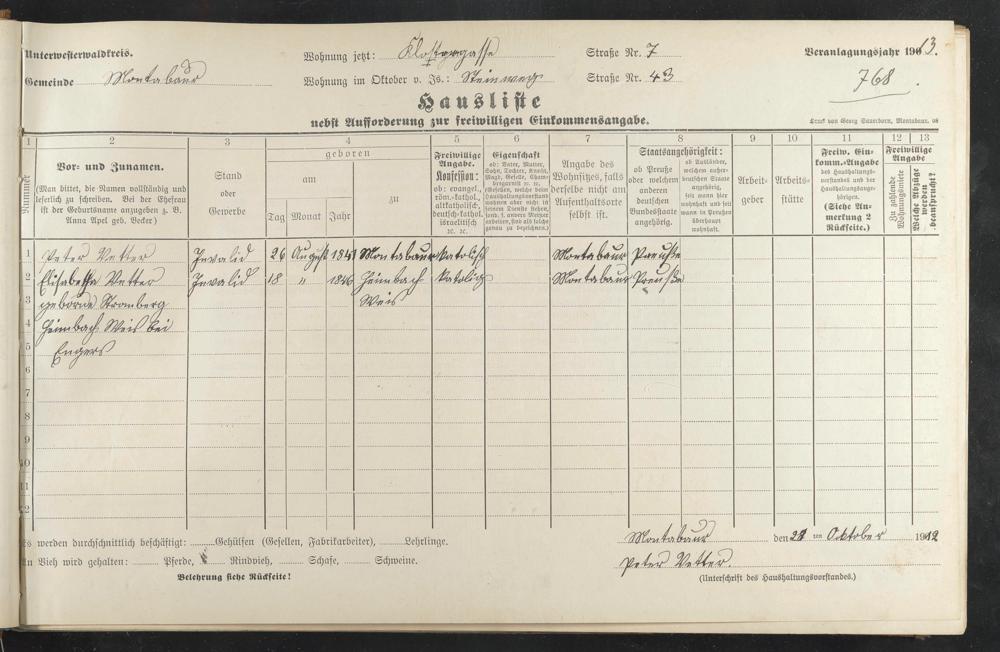 Unterwesterwaldkreis. Wohnung jetzt: Klostergasse Straße Nr. 7 Veranlagungsjahr 1913.
Gemeinde Montabaur Wohnung im Oktober v. Js.: Steinweg Straße Nr. 43 768.
Hausliste
nebst Aufforderung zur freiwilligen Einkommensangabe.
Druck von Georg Sauerborn, Montabaur.
1 2 3 4 5 6 7 8 9 10 11 12 13
Nummer
Vor- und Zunamen.
(Man bittet, die Namen vollständig und
leserlich zu schreiben. Bei der Ehefrau
ist der Geburtsname anzugeben z. B.
Anna Apel geb. Becker)
Stand
oder
Gewerbe
geboren
am
Tag Monat Jahr
zu
Freiwillige
Angabe.
Konfession:
ob: evangel.,
röm.-kathol.,
altkatholisch
deutsch-kathol.
israelitisch
ec. ec.
Eigenschaft
ob: Vater, Mutter,
Sohn, Tochter, Knecht,
Magd, Geselle,
Angabe des
Wohnsitzes, falls
derselbe nicht am
Aufenthaltsorte
selbst ist.
Staatsangehörigkeit:
ob Preuße
oder welchem
anderen
deutschen
Bundesstaate
angehörig.
ob Ausländer,
welchem außer-
deutschen Staate
angehörig,
seit wann hier
wohnhaft und seit
wann in Preußen
überhaupt
wohnhaft.
Arbeit-
geber
Arbeits-
stätte
Freiw. Ein-
komm.-Angabe
des Haushaltungs-
vorstandes und der
Haushaltungsange-
hörigen.
(Siehe An-
merkung 2
Rückseite.)
Freiwillige
Angabe
Zu zahlende
Wohnungsmiete
Welche Abzüge
werden
beansprucht?
1 Peter Vetter Invalid 26 August 1841 Montabaur katolisch Montabaur Preuße
2 Elisabetha Vetter Invalid 18 " 1846 Heimbach katolig Montabaur Preuße
3 geborne Stromberg Weis "
4 Heimbach Weis bei
5 Engers
6
7
8
9
10
11
12
Es werden durchschnittlich beschäftigt: Gehülfen (Gesellen, Fabrikarbeiter), Lehrlinge. Montabaur den 21 ten Oktober 1912
An Vieh wird gehalten: Pferde, Rindvieh, Schafe, Schweine. Peter Vetter.
Belehrung siehe Rückseite! (Unterschrift des Haushaltungsvorstandes.)